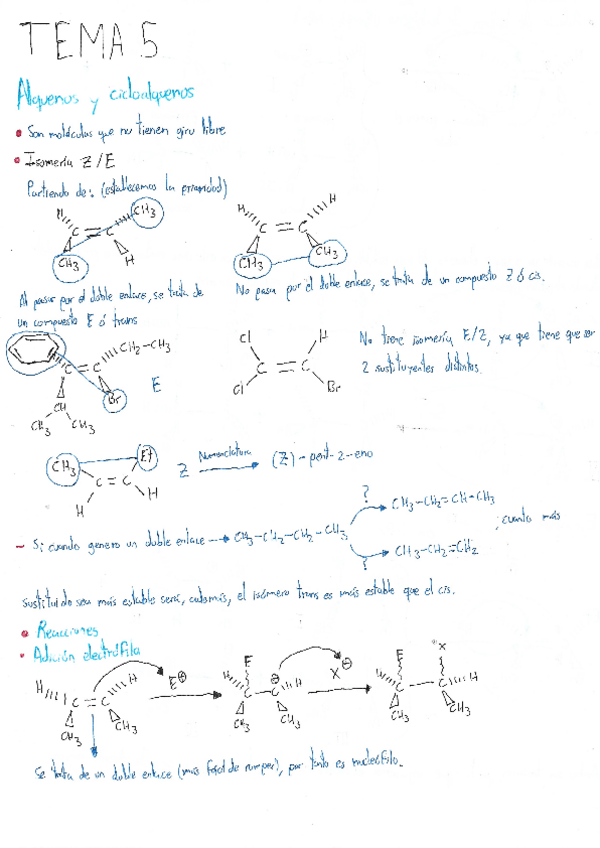 TEMA 5
Alquenos y cicloalquenos
• Son moléculas que no tienen giro libre
• Isomería Z/E
Partiendo de: (establecemos la prioridad)
H CH3 C = C CH3 H
H H C = C CH3 CH3
Al pasar por el doble enlace, se trata de
un compuesto E ó trans
No pasa por el doble enlace, se trata de un compuesto Z ó cis.
C = C CH2-CH3
CH Br
CH3 CH3
E
Cl H
C = C
Cl Br
No tiene isomería E/Z, ya que tiene que ser
2 sustituyentes distintos
CH3 Et
C = C
H H
Z Nomenclatura → (Z)-pent-2-eno
- Si cuando genero un doble enlace → CH3-CH2-CH2-CH3
? CH3-CH2=CH-CH3
? CH3-CH2=CH2
; cuanto más
sustituido sea más estable será, además, el isómero trans es más estable que el cis.
• Reacciones
• Adición electrófila
H C = C H CH3 CH3
E⊕
E H C - C ⊕ H CH3 CH3
X⊖
E X H C - C H CH3 CH3
Se trata de un doble enlace (más fácil de romper), por tanto es nucleófilo.